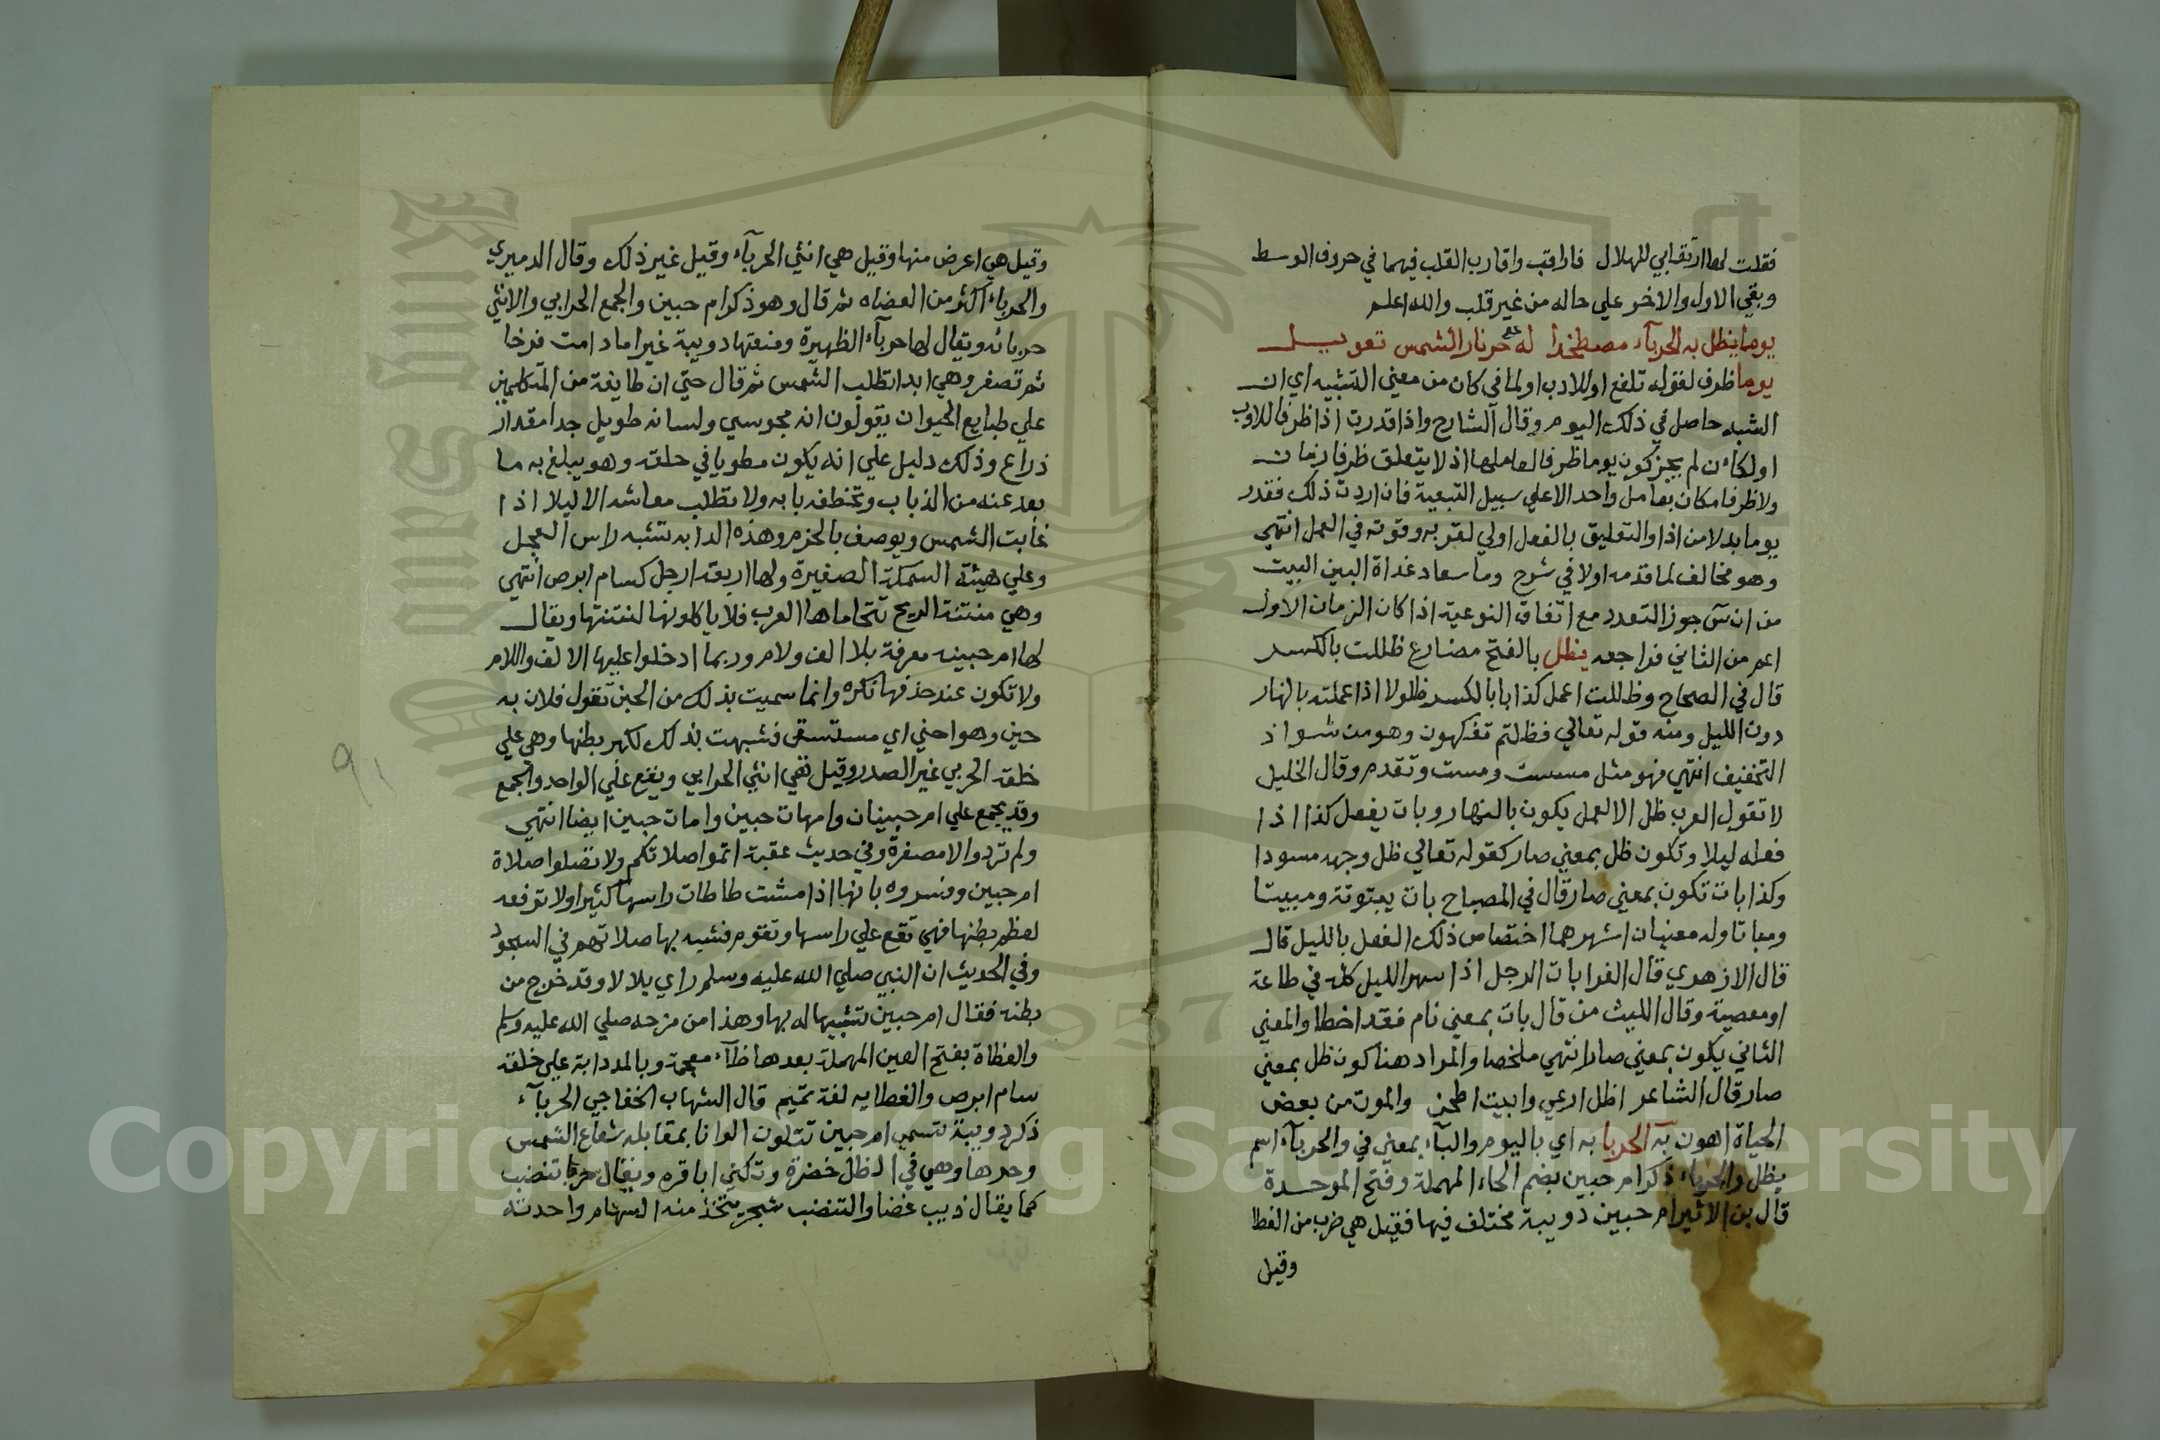 فقلت لها ارتقابي للهلال فاراقب واقارب القلب فيهما في حروف الوسط
وبقي الاول والاخر علي حاله من غير قلب والله اعلم
يوما يظل به الحرباء مصطخدا له حر نار الشمس تعويل
يوما ظرف لقوله تلفع او للادب او لما في كان من معني التشبيه اي ان
الشبه حاصل في ذلك اليوم وقال الشارح واذا قدرت اذا ظرفا للاوب
او لكأن لم يجز كون يوما ظرفا لعاملها اذ لا يتعلق ظرفا زمان
ولا ظرفا مكان بعامل واحد الا علي سبيل التبعية فان اردت ذلك فقدر
يوما بدلا من اذا والتعليق بالفعل اولي لقربه وقوته في العمل انتهي
وهو مخالف لما قدمه اولا في شرح وما سعاد غداة البين البيت
من ان س جوز التعدد مع اتفاق النوعية اذا كان الزمان الاول
اعم من الثاني فراجعه يظل بالفتح مضارع ظللت بالكسر
قال في الصحاح وظللت اعمل كذا بابا لكسر ظلولا اذا عملته بالنهار
دون الليل ومنه قوله تعالي فظلتم تفكهون وهو من شواذ
التخفيف انتهي فهو مثل مسست ومست وتقدم وقال الخليل
لا تقول العرب ظل الا لعمل يكون بالنهار وبات يفعل كذا اذا
فعله ليلا وتكون ظل بمعني صار كقوله تعالي ظل وجهه مسودا
وكذا بات تكون بمعني صار قال في المصباح بات يبتوتة ومبيتا
ومباتا وله معنيان اشهرهما اختصاص ذلك الفعل بالليل قال
قال الازهري قال الفرا بات الرجل اذا سهر الليل كله في طاعة
او معصية وقال الليث من قال بات بمعني نام فقد اخطا والمعني
الثاني يكون بمعني صار انتهي ملخصا والمراد هنا كون ظل بمعني
صار قال الشاعر اظل ارعي وابيت اطحن والموت من بعض
الحياة اهون به الحربا به اي باليوم والبآء بمعني في والحربآء اسم
يظل والحرباء ذكر ام حبين بضم الحاء المهملة وفتح الموحدة
قال بن الاثير ام حبين دويبة مختلف فيها فقيل هي ضرب من العظا
وقيل
وقيل هي اعرض منها وقيل هي انثي الحربآء وقيل غير ذلك وقال الدميري
والحرباء اكثر من العضاه ثم قال وهو ذكر ام حبين والجمع الحرابي والانثي
حربائه ويقال لها حربآء الظهيرة ومنعتها دويبة غبرا مادامت فرخا
ثم تصفر وهي ابدا تطلب الشمس ثم قال حتي ان طايفة من المتكلمين
علي طبايع الحيوان يقولون انه مجوسي ولسانه طويل جدا مقدار
ذراع وذلك دليل علي انه يكون مطويا في حلقه وهو يبلغ به ما
بعد عنه من الذباب وتخطفه بابه ولا تطلب معاشه الا ليلا اذا
غابت الشمس ويوصف بالحزم وهذه الدابه تشبه راس العجل
وعلي هيئة السمكة الصغيرة ولها اربعة ارجل كسام ابرص انتهي
وهي منتنة الريح تتحاماها العرب فلا ياكلونها لنتنتها ويقال
لها ام حبينه معرفة بلا الف ولام وربما ادخلوا عليها الالف واللام
ولا تكون عند حذفها نكره وانما سميت بذلك من الحبن تقول فلان به
حبن وهو احني اي مستسق فشبهت بذلك لكبر بطنها وهي علي
خلقة الحربي غير الصدر وقيل هي انثي الحرابي ويقع علي الواحد والجمع
وقد يجمع علي ام حبينان وامهات حبين وامات حبين ايضا انتهي
ولم ترد والا مصغرة وفي حديث عقبة اتموا صلاتكم ولا تصلوا صلاة
ام حبين وفسروه بانها اذا مشت طاطات راسها كثيرا ولا ترفعه
لعظم بطنها فهي تقع علي راسها وتقوم فشبه بها صلاتهم في السجود
وفي الحديث ان النبي صلي الله عليه وسلم راي بلالا وقد خرج من
بطنه فقال ام حبين تشبيها له بها وهذا من مزحه صلي الله عليه وسلم
والعظاة بفتح العين المهملة بعدها ظآء معجمة وبالمد دابة علي خلقة
سام ابرص والعظايه لغة تميم قال الشهاب الخفاجي الحربآء
ذكر دويبة تسمي ام حبين تتلون الوانا بمقابله شعاع الشمس
وحرها وهي في الظل خضرة وتكني ابا قره ويقال حربا تنضب
كما يقال ذيب غضا والتنضب شجر يتخذ منه السهام واحدته
٩١
Copyright © King Saud University
1957